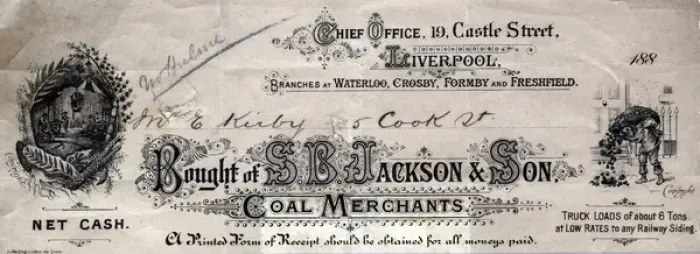 CHIEF OFFICE, 19, CASTLE STREET,
LIVERPOOL,
188
BRANCHES AT WATERLOO, CROSBY, FORMBY AND FRESHFIELD.
Mr Hulme
E Kirby 5 Cook St.
Bought of S. B. JACKSON & SON.
COAL MERCHANTS.
NET CASH.
Copyright
TRUCK LOADS of about 6 Tons
at LOW RATES to any Railway Siding.
A Printed Form of Receipt should be obtained for all moneys paid.